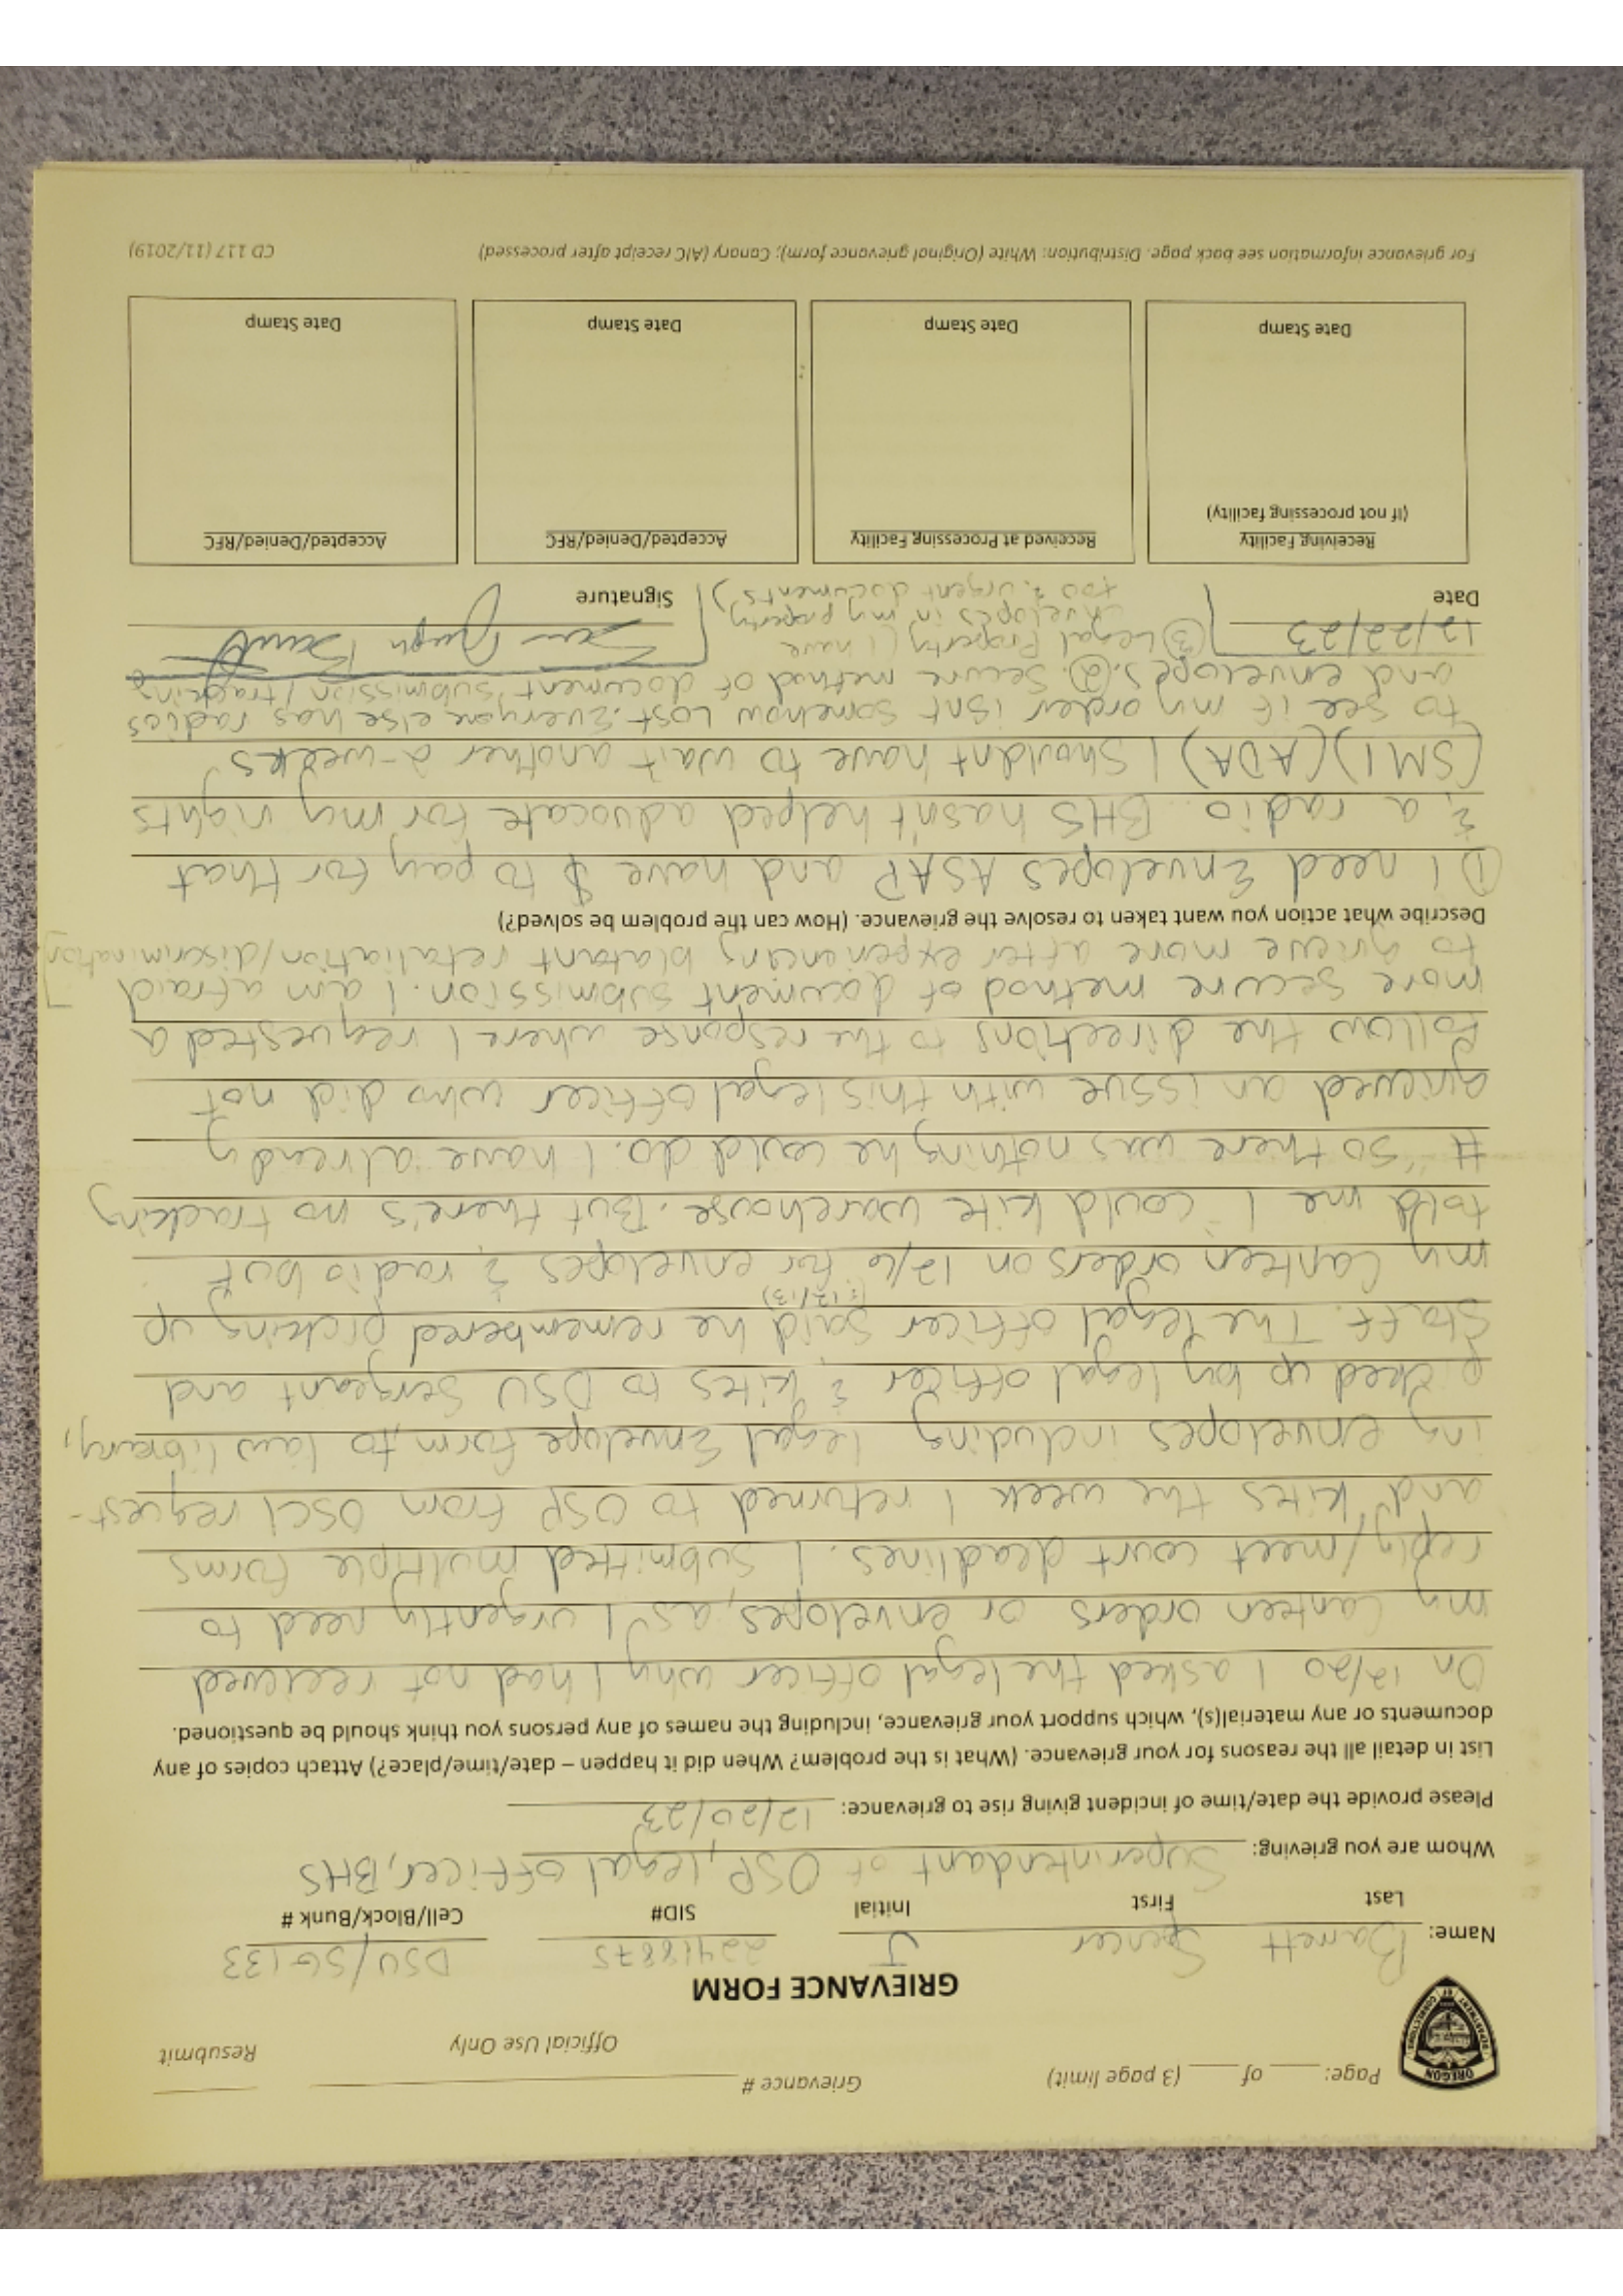 Page: ____ of ____ (3 page limit)
Grievance # ____
Official Use Only
Resubmit
OREGON
DEPARTMENT OF CORRECTIONS
GRIEVANCE FORM
Name: Barrett Spencer J 22418875 DSU/SG133
Last First Initial SID# Cell/Block/Bunk #
Whom are you grieving: Superintendant of OSP, legal officer, BHS
Please provide the date/time of incident giving rise to grievance: 12/20/23
List in detail all the reasons for your grievance. (What is the problem? When did it happen – date/time/place?) Attach copies of any
documents or any material(s), which support your grievance, including the names of any persons you think should be questioned.
On 12/20 I asked the legal officer why I had not recieved
my canteen orders or envelopes, as I urgently need to
reply/meet court deadlines. I submitted multiple forms
and kites the week I returned to OSP from OSCI request-
ing envelopes including legal Envelope form to law library,
picked up by legal officer & kites to DSU Sergeant and
Staff. The legal officer said he remembered picking up
(& 12/13)
my canteen orders on 12/6 for envelopes & radio but
told me I could kite warehouse. But there's no tracking
# "so there was nothing he could do. I have already
grieved an issue with this legal officer who did not
follow the directions to the response where I requested a
more secure method of document submission. I am afraid
to grieve more after experiencing blatant retaliation/discrimination
Describe what action you want taken to resolve the grievance. (How can the problem be solved?)
① I need Envelopes ASAP and have $ to pay for that
& a radio. BHS hasn't helped advocate for my rights
(SMI)(ADA) I shouldnt have to wait another 2-weeks
to see if my order isnt somehow lost. Everyone else has radios
and envelopes. ②. Secure method of document submission/tracking
③ Legal Property (I have
envelopes in my property
too & urgent documents)
12/22/23
Date
Signature
Receiving Facility
(If not processing facility)
Date Stamp
Received at Processing Facility
Date Stamp
Accepted/Denied/RFC
Date Stamp
Accepted/Denied/RFC
Date Stamp
For grievance information see back page. Distribution: White (Original grievance form); Canary (AIC receipt after processed)
CD 117 (11/2019)